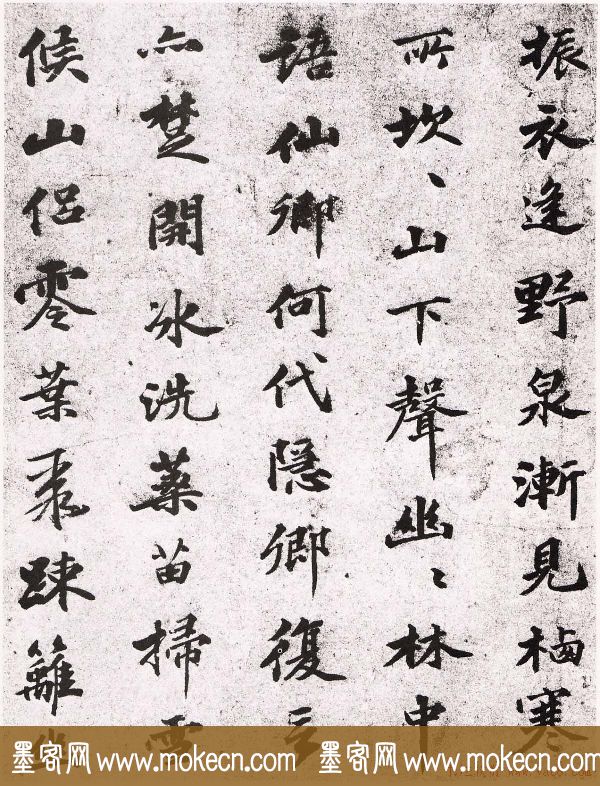 振衣逢野泉漸見栖寒
所坎、山下聲幽、林中
語仙卿何代隱鄉復言
亦楚開冰洗藥苗掃雪
候山侶零葉聚踈籬幽
墨客网 www.mokecn.com 墨客网 www.mokecn.com